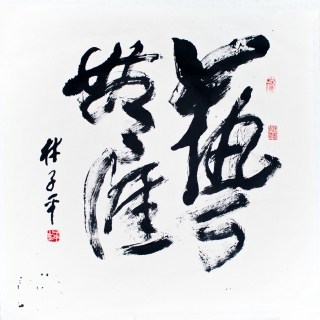 藝無涯
林子平